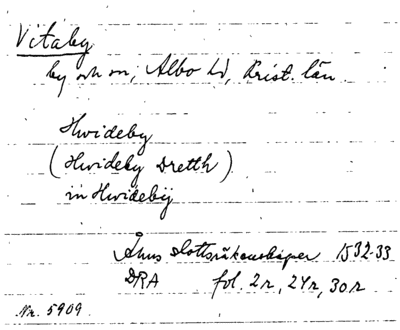 Vitaby
by och sn, Albo hd, Krist. län
Hwideby
(Hwideby Dretth)
in Hwidebÿ
Åhus slottsräkenskaper 1532-33
DRA fol. 2r, 24r, 30r
Nr. 5909